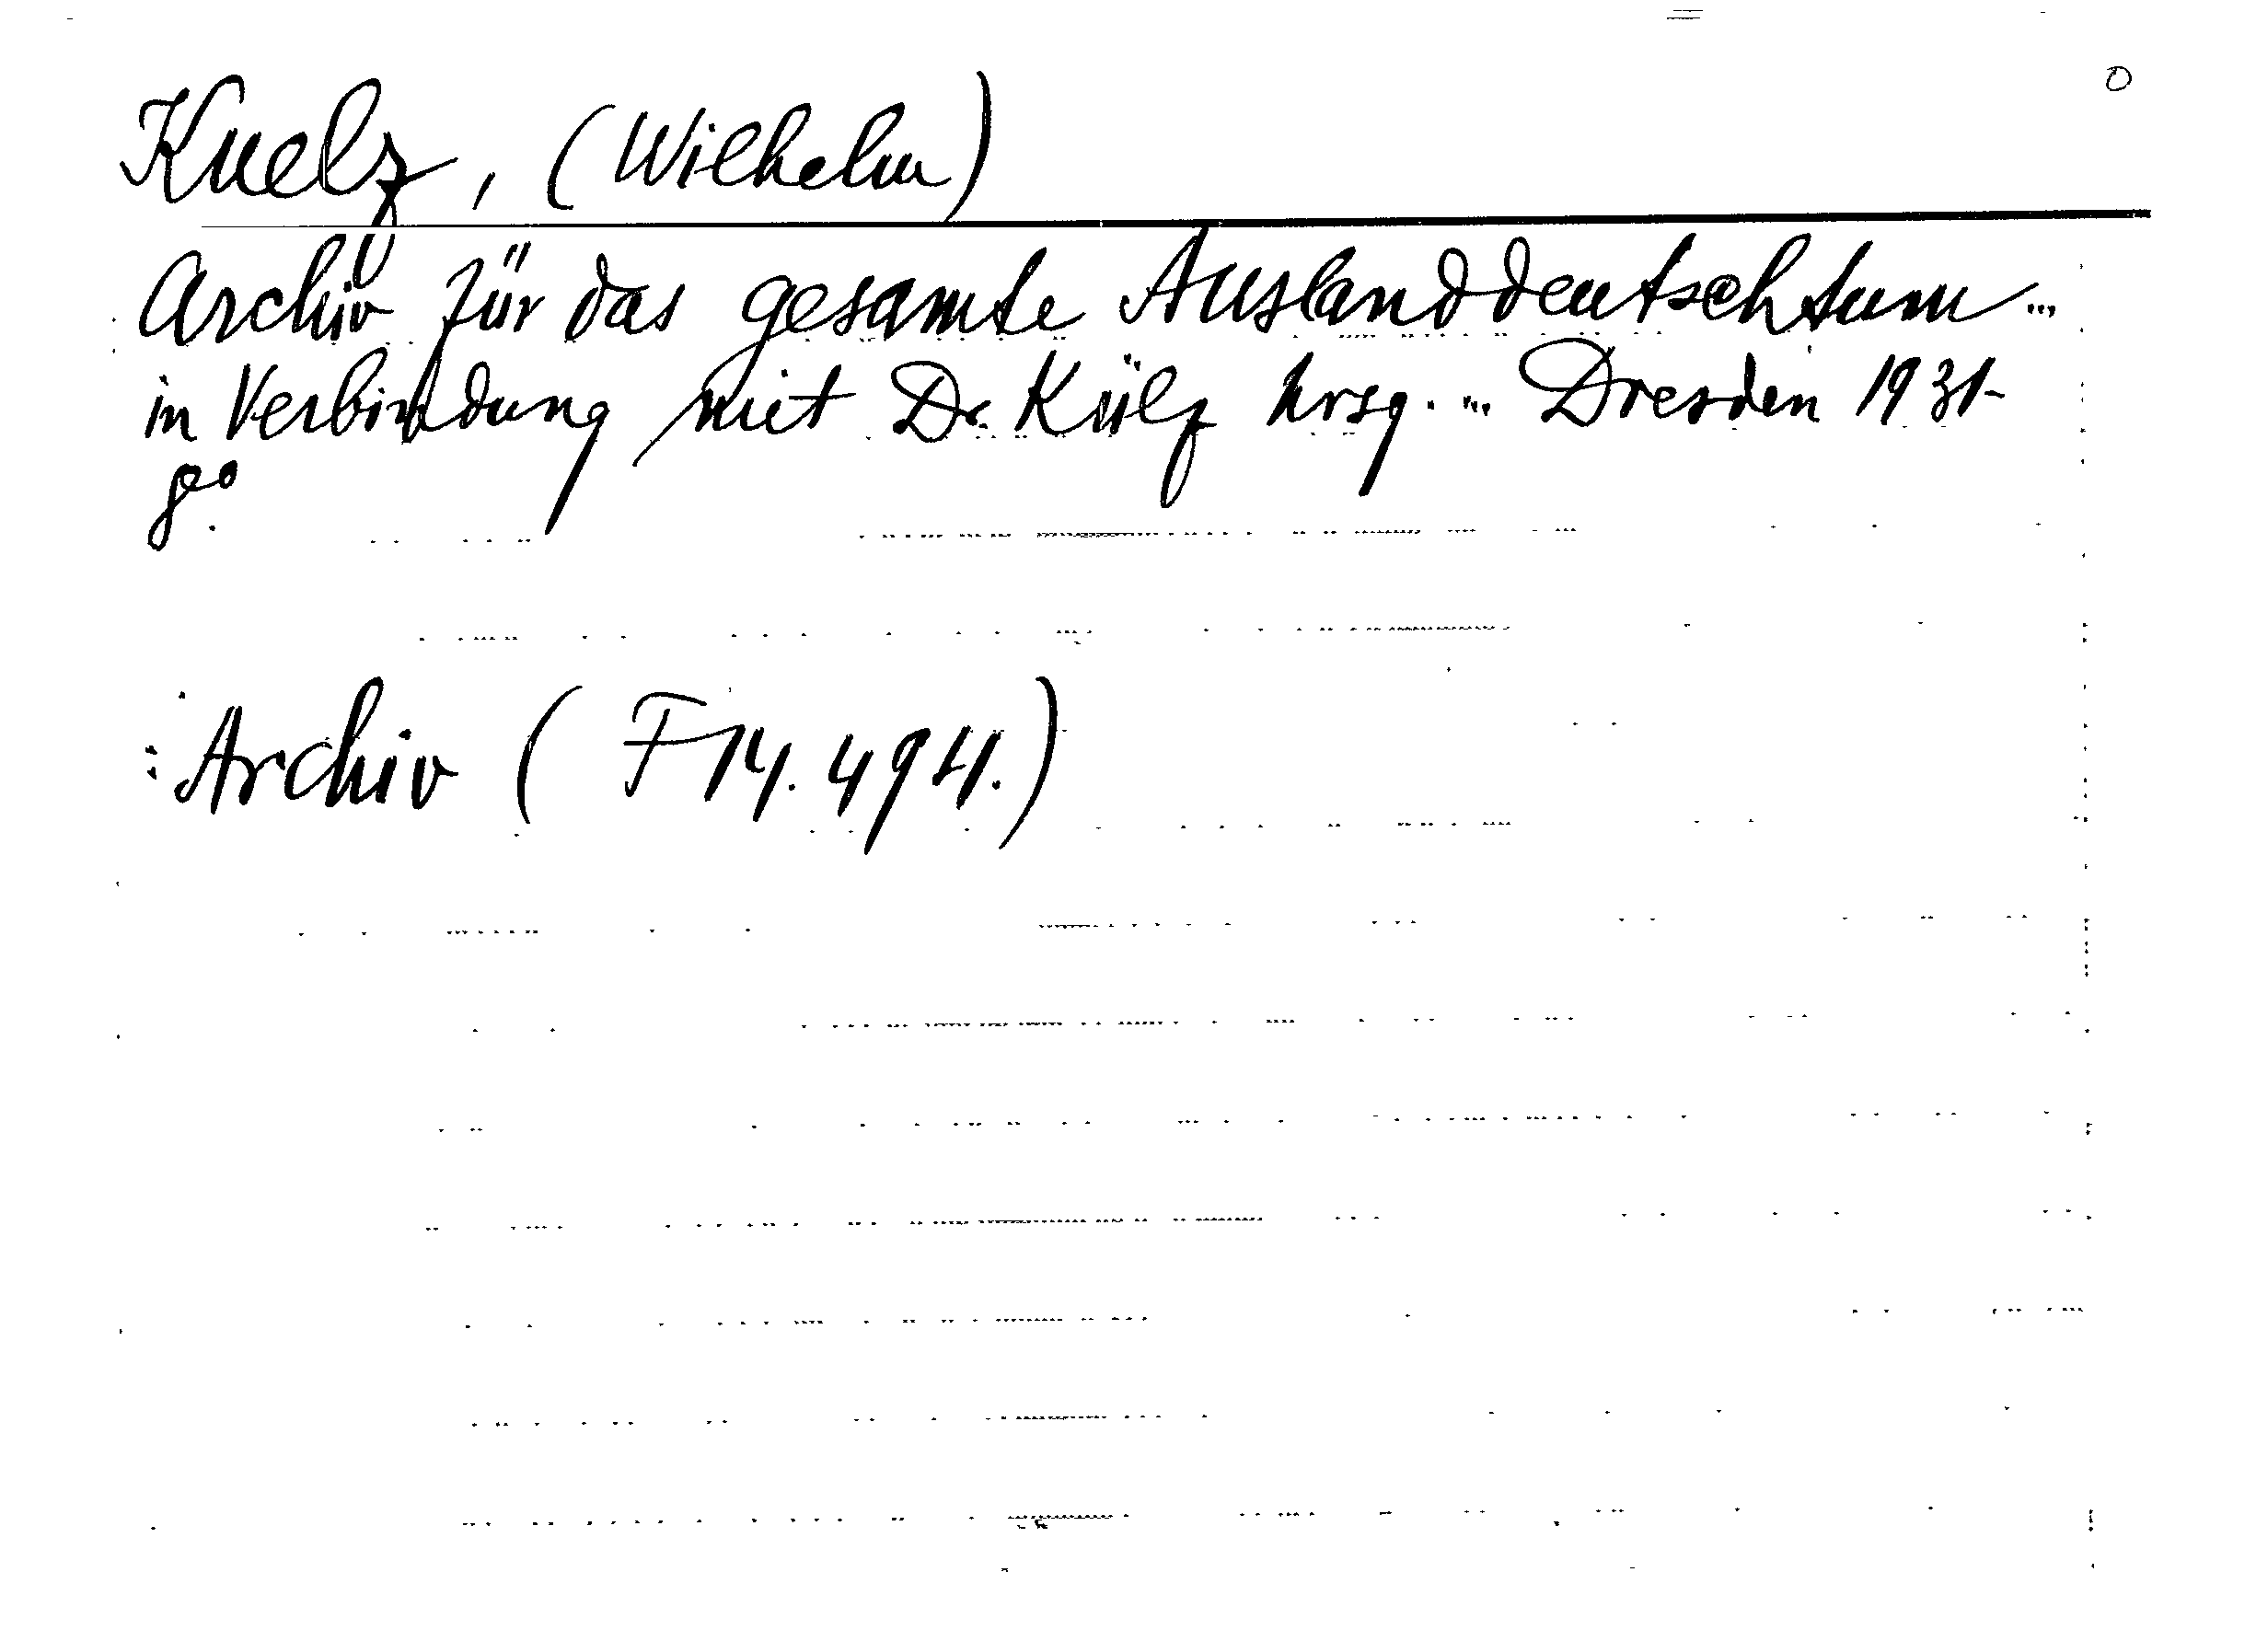 O
Kuelz, (Wilhelm)
Archiv für das gesamte Auslanddeutschtum ...
in Verbindung mit Dr. Külz hrsg. ... Dresden 1931-
8°.
: Archiv ( F 14.494.)